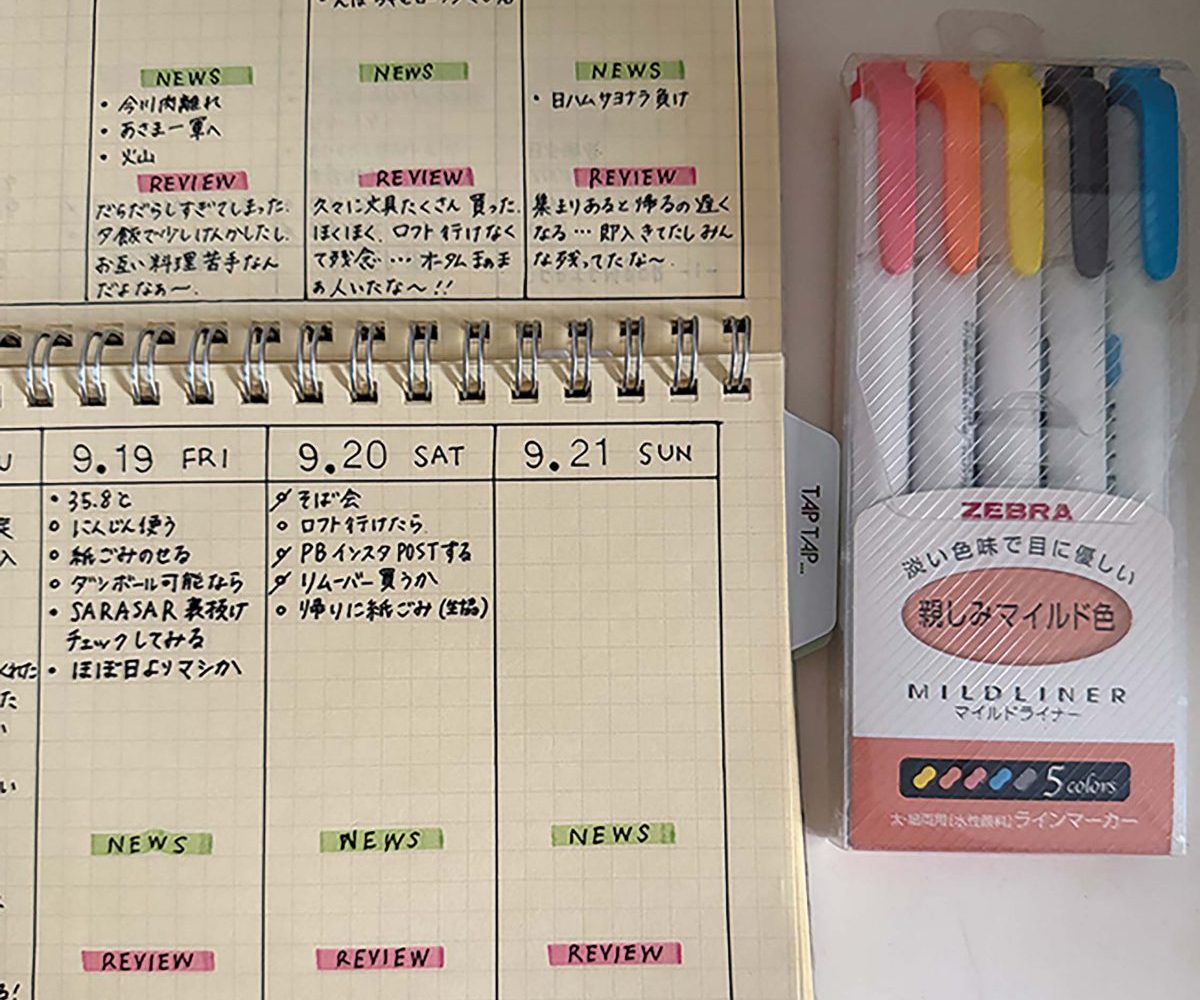 NEWS
・今川肉離れ
・あさま一軍へ
・火山
REVIEW
だらだらしすぎてしまった.
夕飯で少しけんかしたし.
お互い料理苦手なん
だよなぁ〜.
NEWS
REVIEW
久々に文具たくさん買った.
ほくほく. ロフト行けなく
て残念… オータムまぁま
ぁ人いたな〜!!
NEWS
・日ハムサヨナラ負け
REVIEW
集まりあると帰るの遅く
なる… 即入きてたしみん
な残ってたな〜.
9.19 FRI
・35.8℃
○ にんじん使う
○ 紙ごみのせる
○ ダンボール可能なら
・SARASAR 裏抜け
チェックしてみる
・ほぼ日よりマシか
NEWS
REVIEW
9.20 SAT
○ そば会
○ ロフト行けたら
○ PBインスタPOSTする
○ リムーバー買うか
○ 帰りに紙ごみ(生協)
NEWS
REVIEW
9.21 SUN
NEWS
REVIEW
TAP TAP...
ZEBRA
淡い色味で目に優しい
親しみマイルド色
MILDLINER
マイルドライナー
5 colors
太・細両用[水性顔料]ラインマーカー